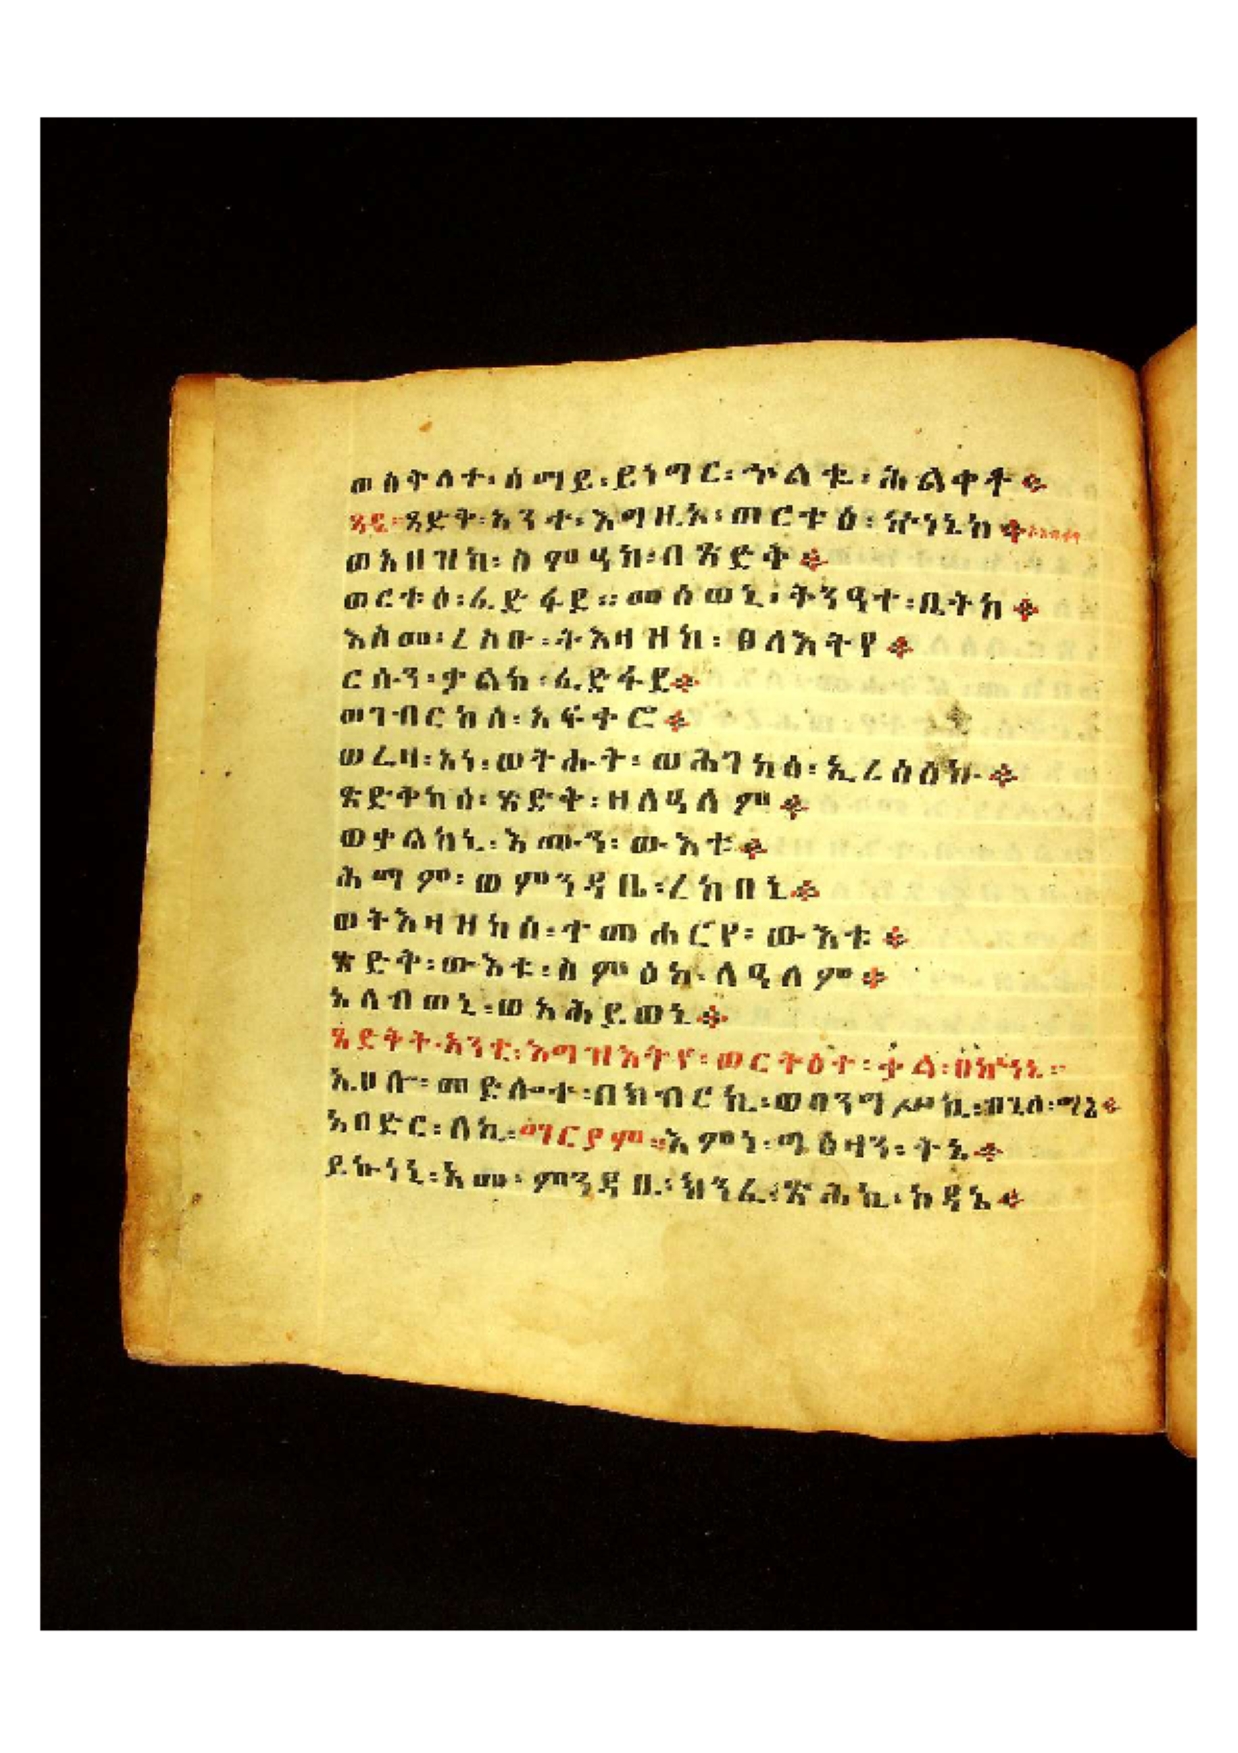 ወስትለተ፡ሰማይ፡ይነግር፡ኍልቊ፡ሕልቀቶ፨
ጻዴ፡ጻድቅ፡አንተ፡እግዚኦ፡ወርቱዕ፡ኵነኔከ፨
ወአዘዝከ፡ስምዓከ፡በጽድቅ፨
ወርቱዕ፡ፈድፋደ። መሰወኒ፡ቅንዓተ፡ቤትከ፨
እስመ፡ረስዑ፡ትእዛዝከ፡ፀላእትየ፨
ርሱን፡ቃልከ፡ፈድፋደ፨
ወገብርከሰ፡አፍቀሮ፨
ወሬዛ፡አነ፡ወትሑት፡ወሕገከሰ፡ኢረሳዕኩ፨
ጽድቅከሰ፡ጽድቅ፡ዘለዓለም፨
ወቃልከኒ፡እሙን፡ውእቱ፨
ሕማም፡ወምንዳቤ፡ረከበኒ፨
ወትእዛዝከሰ፡ተመሐርየ፡ውእቱ፨
ጽድቅ፡ውእቱ፡ስምዕከ፡ለዓለም፨
አለብወኒ፡ወአሕይወኒ፨
ጻድቅት፡አንቲ፡እግዝእትየ፡ወርትዕተ፡ቃል፡በኵነኔ።
አሀሉ፡መድሎተ፡በክብርኪ፡ወበንግሥኪ፡በጊሰ፡ማኔ፨
አበድር፡ለኪ፡ማርያም። እምነ፡ማዕዛን፡ቅኔ፨
ይኩነኒ፡አመ፡ምንዳቤ፡ክንፈ፡ጽሕኪ፡ከዳኔ፨